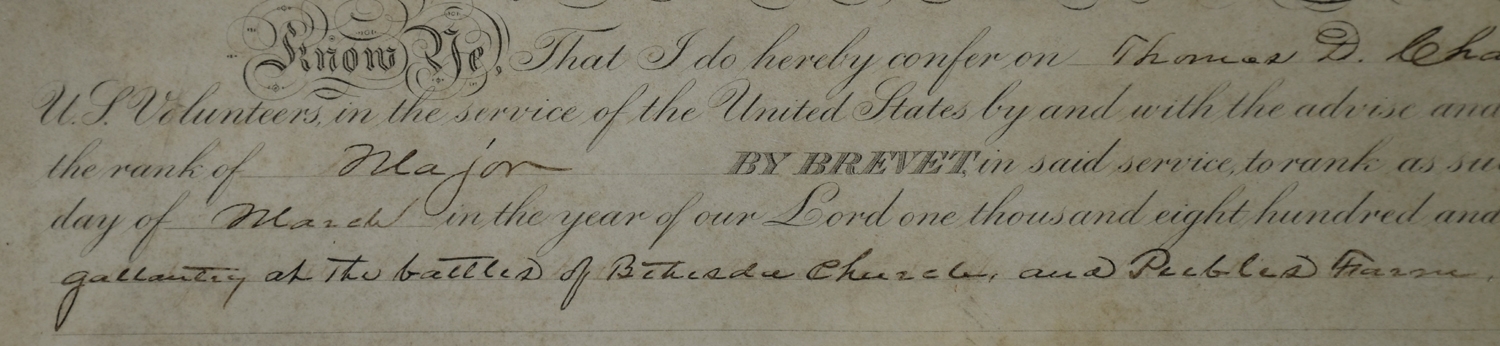 Know Ye, That I do hereby confer on Thomas D. Cha
U.S. Volunteers, in the service of the United States by and with the advise and
the rank of Major BY BREVET, in said service, to rank as su
day of March in the year of our Lord one thousand eight hundred and
gallantry at the battles of Bethesda Church, and Peebles Farm,